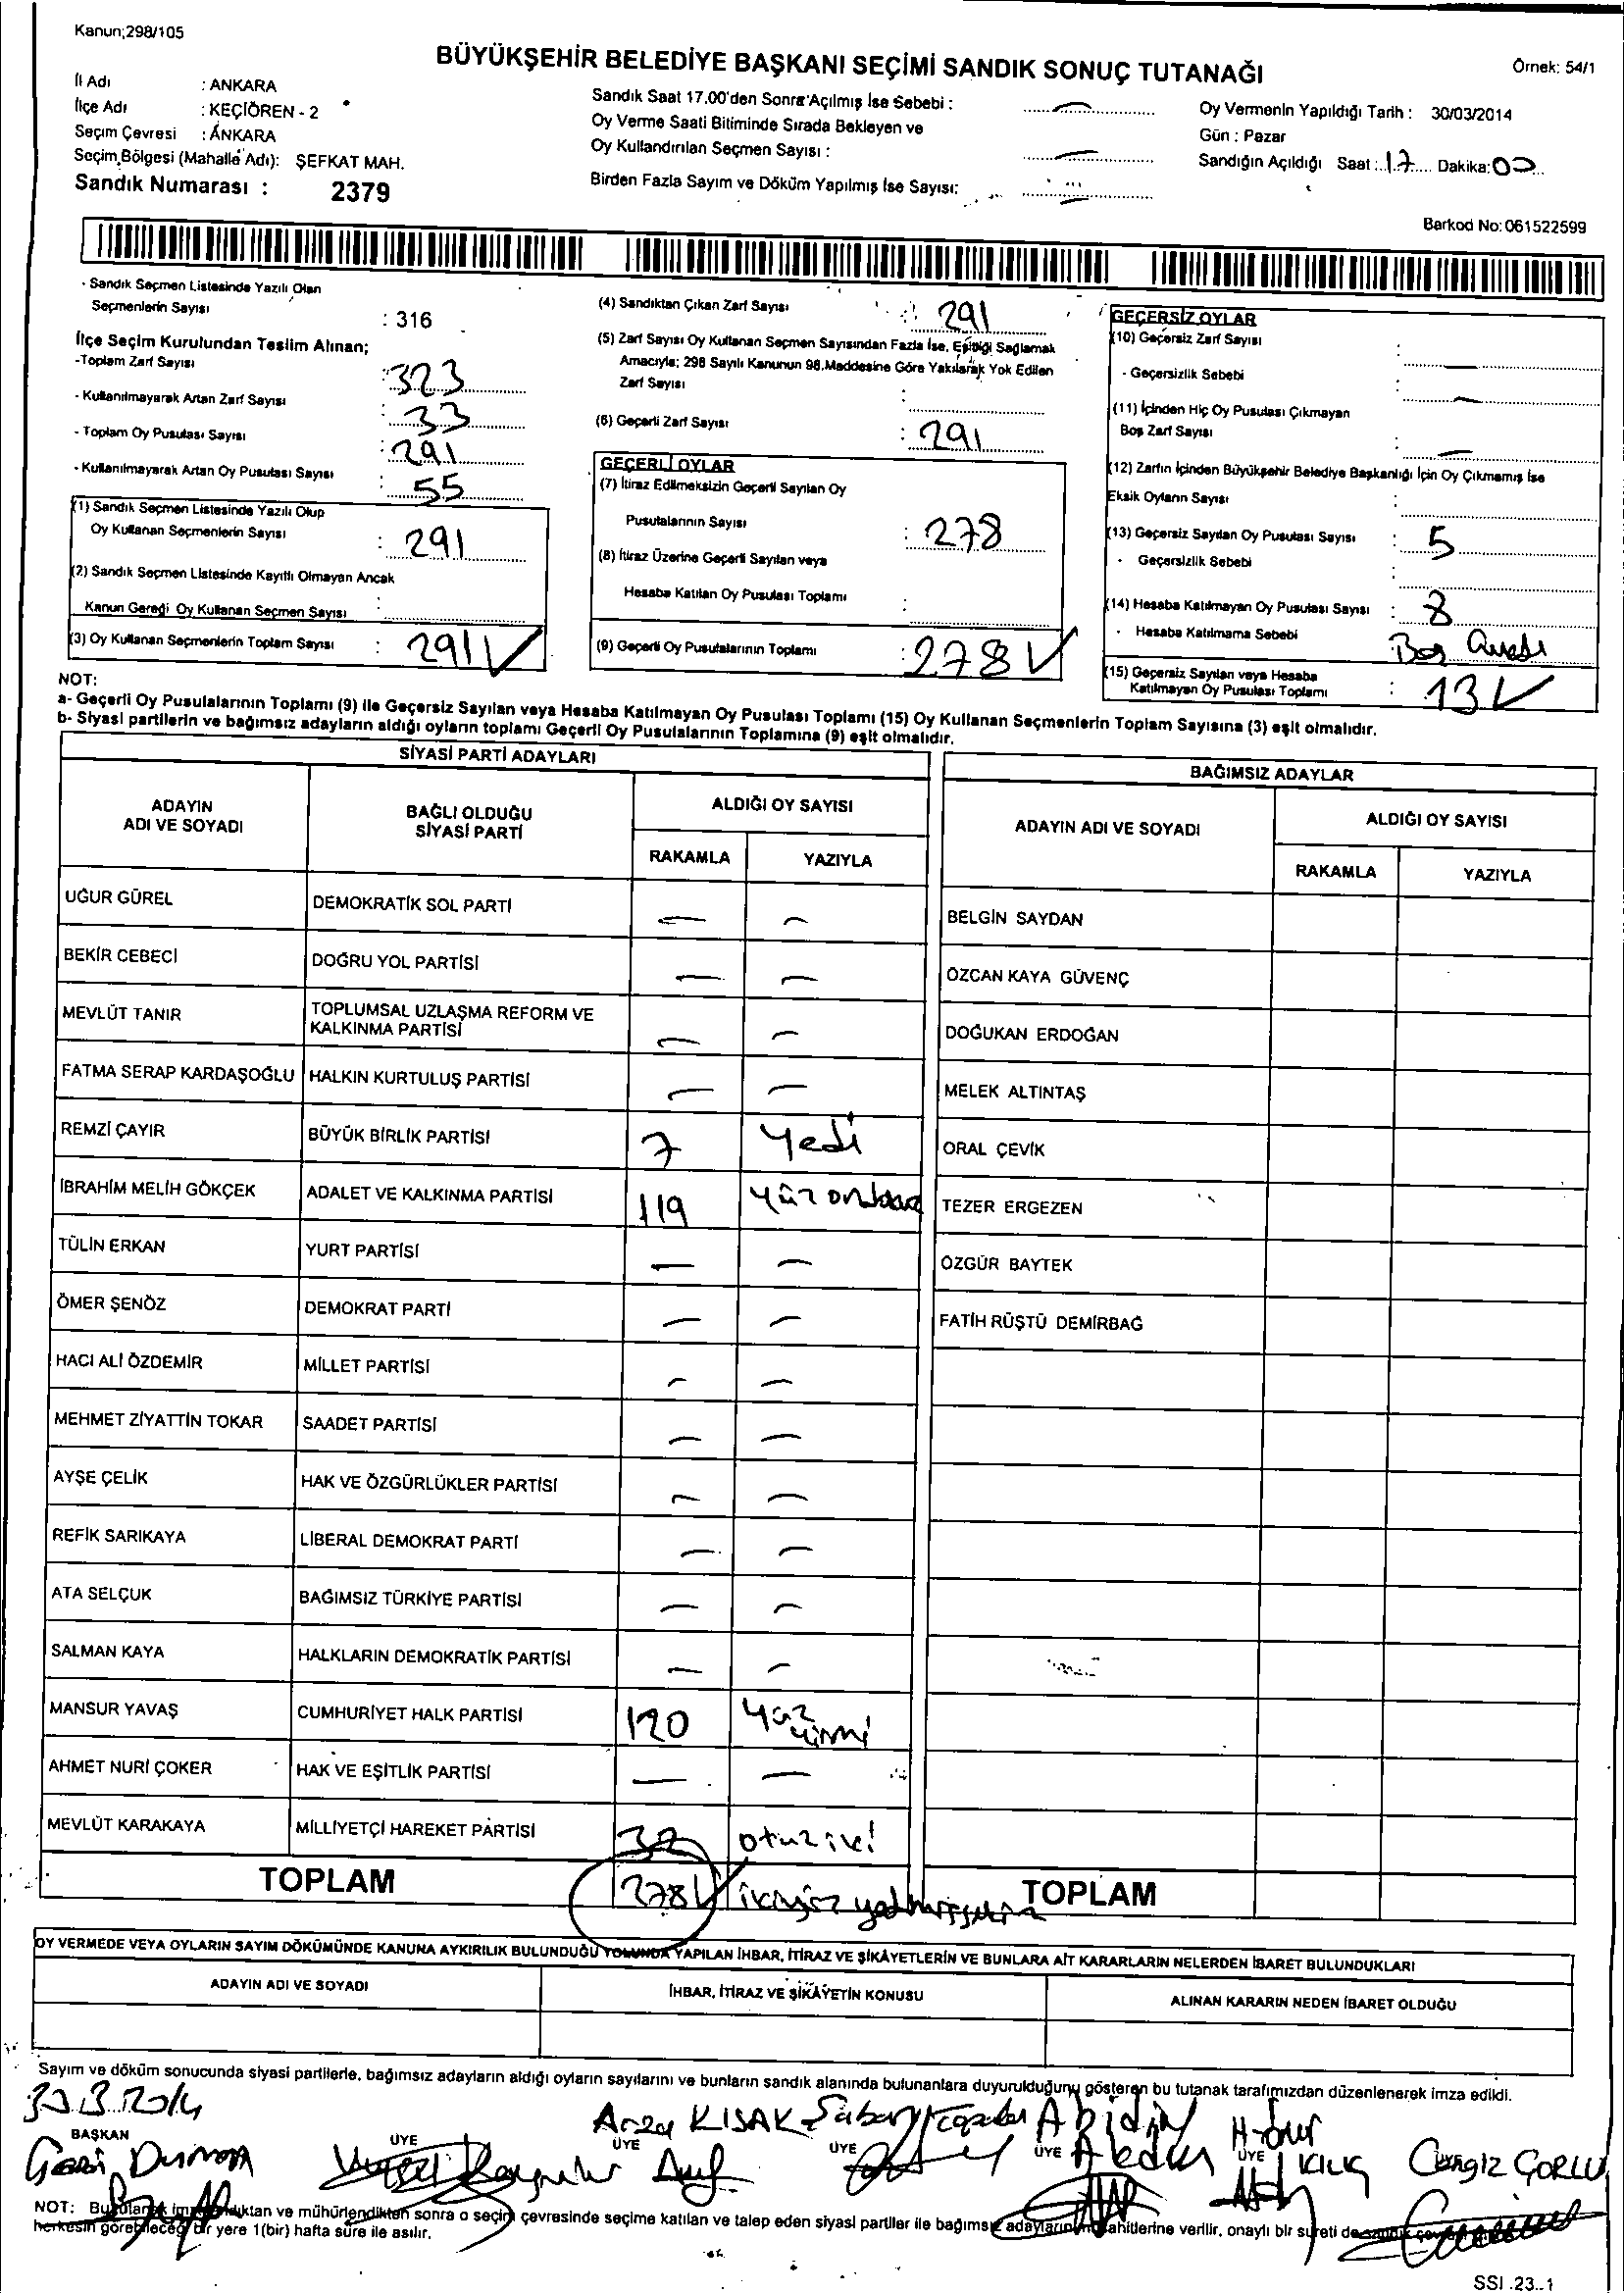 Kanun;298/105
BÜYÜKŞEHİR BELEDİYE BAŞKANI SEÇİMİ SANDIK SONUÇ TUTANAĞI
Örnek: 54/1
İl Adı : ANKARA
İlçe Adı : KEÇİÖREN - 2
Seçim Çevresi : ANKARA
Seçim Bölgesi (Mahalle Adı): ŞEFKAT MAH.
Sandık Numarası : 2379
Sandık Saat 17.00'den Sonra Açılmış İse Sebebi :
Oy Verme Saati Bitiminde Sırada Bekleyen ve
Oy Kullandırılan Seçmen Sayısı :
Birden Fazla Sayım ve Döküm Yapılmış İse Sayısı:
Oy Vermenin Yapıldığı Tarih : 30/03/2014
Gün : Pazar
Sandığın Açıldığı Saat : 17 Dakika: 00
Barkod No: 061522599
- Sandık Seçmen Listesinde Yazılı Olan
Seçmenlerin Sayısı : 316
İlçe Seçim Kurulundan Teslim Alınan;
-Toplam Zarf Sayısı : 323
- Kullanılmayarak Artan Zarf Sayısı : 33
- Toplam Oy Pusulası Sayısı : 291
- Kullanılmayarak Artan Oy Pusulası Sayısı : 55
(1) Sandık Seçmen Listesinde Yazılı Olup
Oy Kullanan Seçmenlerin Sayısı : 291
(2) Sandık Seçmen Listesinde Kayıtlı Olmayan Ancak
Kanun Gereği Oy Kullanan Seçmen Sayısı :
(3) Oy Kullanan Seçmenlerin Toplam Sayısı : 291
(4) Sandıktan Çıkan Zarf Sayısı : 291
(5) Zarf Sayısı Oy Kullanan Seçmen Sayısından Fazla İse, Eşitliği Sağlamak
Amacıyla; 298 Sayılı Kanunun 98.Maddesine Göre Yakılarak Yok Edilen
Zarf Sayısı :
(6) Geçerli Zarf Sayısı : 291
GEÇERLİ OYLAR
(7) İtiraz Edilmeksizin Geçerli Sayılan Oy
Pusulalarının Sayısı : 278
(8) İtiraz Üzerine Geçerli Sayılan veya
Hesaba Katılan Oy Pusulası Toplamı :
(9) Geçerli Oy Pusulalarının Toplamı : 278
GEÇERSİZ OYLAR
(10) Geçersiz Zarf Sayısı :
- Geçersizlik Sebebi :
(11) İçinden Hiç Oy Pusulası Çıkmayan
Boş Zarf Sayısı :
(12) Zarfın İçinden Büyükşehir Belediye Başkanlığı İçin Oy Çıkmamış İse
Eksik Oyların Sayısı :
(13) Geçersiz Sayılan Oy Pusulası Sayısı : 5
- Geçersizlik Sebebi :
(14) Hesaba Katılmayan Oy Pusulası Sayısı : 8
- Hesaba Katılmama Sebebi : Boş
(15) Geçersiz Sayılan veya Hesaba
Katılmayan Oy Pusulası Toplamı : 13
NOT:
a- Geçerli Oy Pusulalarının Toplamı (9) ile Geçersiz Sayılan veya Hesaba Katılmayan Oy Pusulası Toplamı (15) Oy Kullanan Seçmenlerin Toplam Sayısına (3) eşit olmalıdır.
b- Siyasi partilerin ve bağımsız adayların aldığı oyların toplamı Geçerli Oy Pusulalarının Toplamına (9) eşit olmalıdır.
SİYASİ PARTİ ADAYLARI
ADAYIN ADI VE SOYADI
BAĞLI OLDUĞU SİYASİ PARTİ
ALDIĞI OY SAYISI
RAKAMLA YAZIYLA
BAĞIMSIZ ADAYLAR
ADAYIN ADI VE SOYADI
ALDIĞI OY SAYISI
RAKAMLA YAZIYLA
UĞUR GÜREL DEMOKRATİK SOL PARTİ — — BELGİN SAYDAN
BEKİR CEBECİ DOĞRU YOL PARTİSİ — — ÖZCAN KAYA GÜVENÇ
MEVLÜT TANIR TOPLUMSAL UZLAŞMA REFORM VE KALKINMA PARTİSİ — — DOĞUKAN ERDOĞAN
FATMA SERAP KARDAŞOĞLU HALKIN KURTULUŞ PARTİSİ — — MELEK ALTINTAŞ
REMZİ ÇAYIR BÜYÜK BİRLİK PARTİSİ 7 Yedi ORAL ÇEVİK
İBRAHİM MELİH GÖKÇEK ADALET VE KALKINMA PARTİSİ 119 Yüz ondokuz TEZER ERGEZEN
TÜLİN ERKAN YURT PARTİSİ — — ÖZGÜR BAYTEK
ÖMER ŞENÖZ DEMOKRAT PARTİ — — FATİH RÜŞTÜ DEMİRBAĞ
HACI ALİ ÖZDEMİR MİLLET PARTİSİ — —
MEHMET ZİYATTİN TOKAR SAADET PARTİSİ — —
AYŞE ÇELİK HAK VE ÖZGÜRLÜKLER PARTİSİ — —
REFİK SARIKAYA LİBERAL DEMOKRAT PARTİ — —
ATA SELÇUK BAĞIMSIZ TÜRKİYE PARTİSİ — —
SALMAN KAYA HALKLARIN DEMOKRATİK PARTİSİ — —
MANSUR YAVAŞ CUMHURİYET HALK PARTİSİ 120 Yüz yirmi
AHMET NURİ ÇOKER HAK VE EŞİTLİK PARTİSİ — —
MEVLÜT KARAKAYA MİLLİYETÇİ HAREKET PARTİSİ 32 otuz iki
TOPLAM 278 ikiyüz yetmişsekiz TOPLAM
OY VERMEDE VEYA OYLARIN SAYIM DÖKÜMÜNDE KANUNA AYKIRILIK BULUNDUĞU YOLUNDA YAPILAN İHBAR, İTİRAZ VE ŞİKAYETLERİN VE BUNLARA AİT KARARLARIN NELERDEN İBARET BULUNDUKLARI
ADAYIN ADI VE SOYADI İHBAR, İTİRAZ VE ŞİKÂYETİN KONUSU ALINAN KARARIN NEDEN İBARET OLDUĞU
Sayım ve döküm sonucunda siyasi partilerle, bağımsız adayların aldığı oyların sayılarını ve bunların sandık alanında bulunanlara duyurulduğunu gösteren bu tutanak tarafımızdan düzenlenerek imza edildi.
30.3.2014
BAŞKAN ÜYE ÜYE ÜYE ÜYE ÜYE
Arzu KISAK Abidin
KILIÇ Cengiz ÇORLU
NOT: Bu tutanak imzalandıktan ve mühürlendikten sonra o seçim çevresinde seçime katılan ve talep eden siyasi partiler ile bağımsız adayların müşahitlerine verilir, onaylı bir sureti de sandık
herkesin görebileceği bir yere 1(bir) hafta süre ile asılır.
SSI .23..1